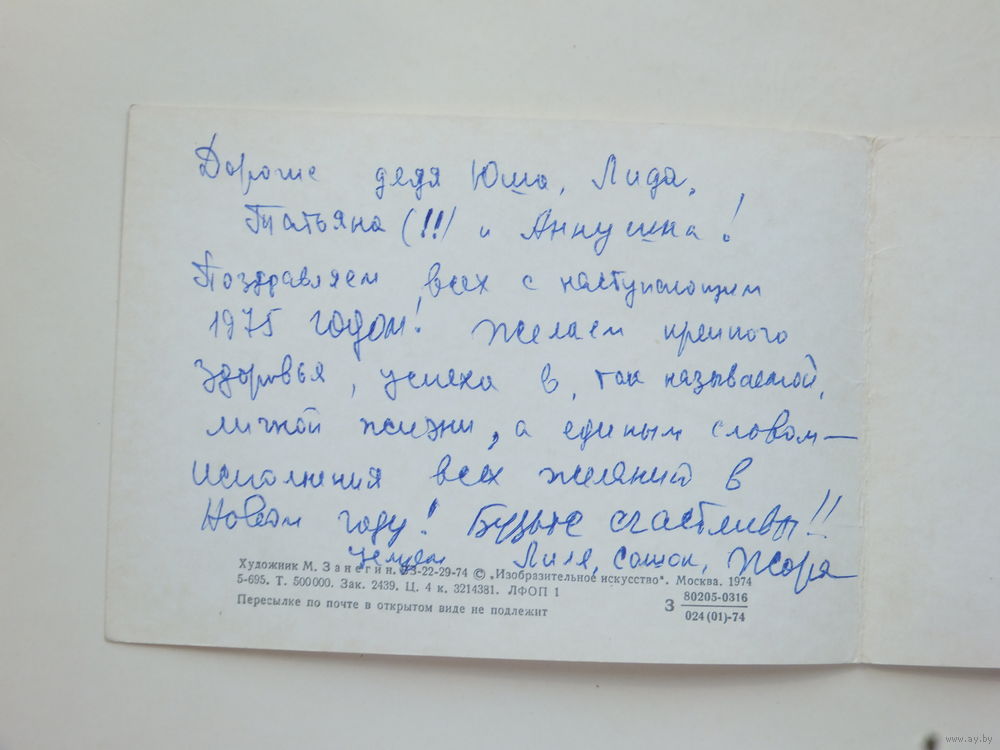 Дорогие дядя Юша, Лида,
Татьяна (!!) и Аннушка!
Поздравляем всех с наступающим
1975 годом! Желаем крепкого
здоровья, успеха в, так называемой,
личной жизни, а единым словом —
исполнения всех желаний в
Новом году! Будьте счастливы!!
целуем Лиля, Сашок, Жора
Художник М. Занегин. 73-22-29-74 © „Изобразительное искусство“. Москва. 1974
5-695. Т. 500000. Зак. 2439. Ц. 4 к. 3214381. ЛФОП 1
Пересылке по почте в открытом виде не подлежит
З 80205-0316
024(01)-74
www.ay.by